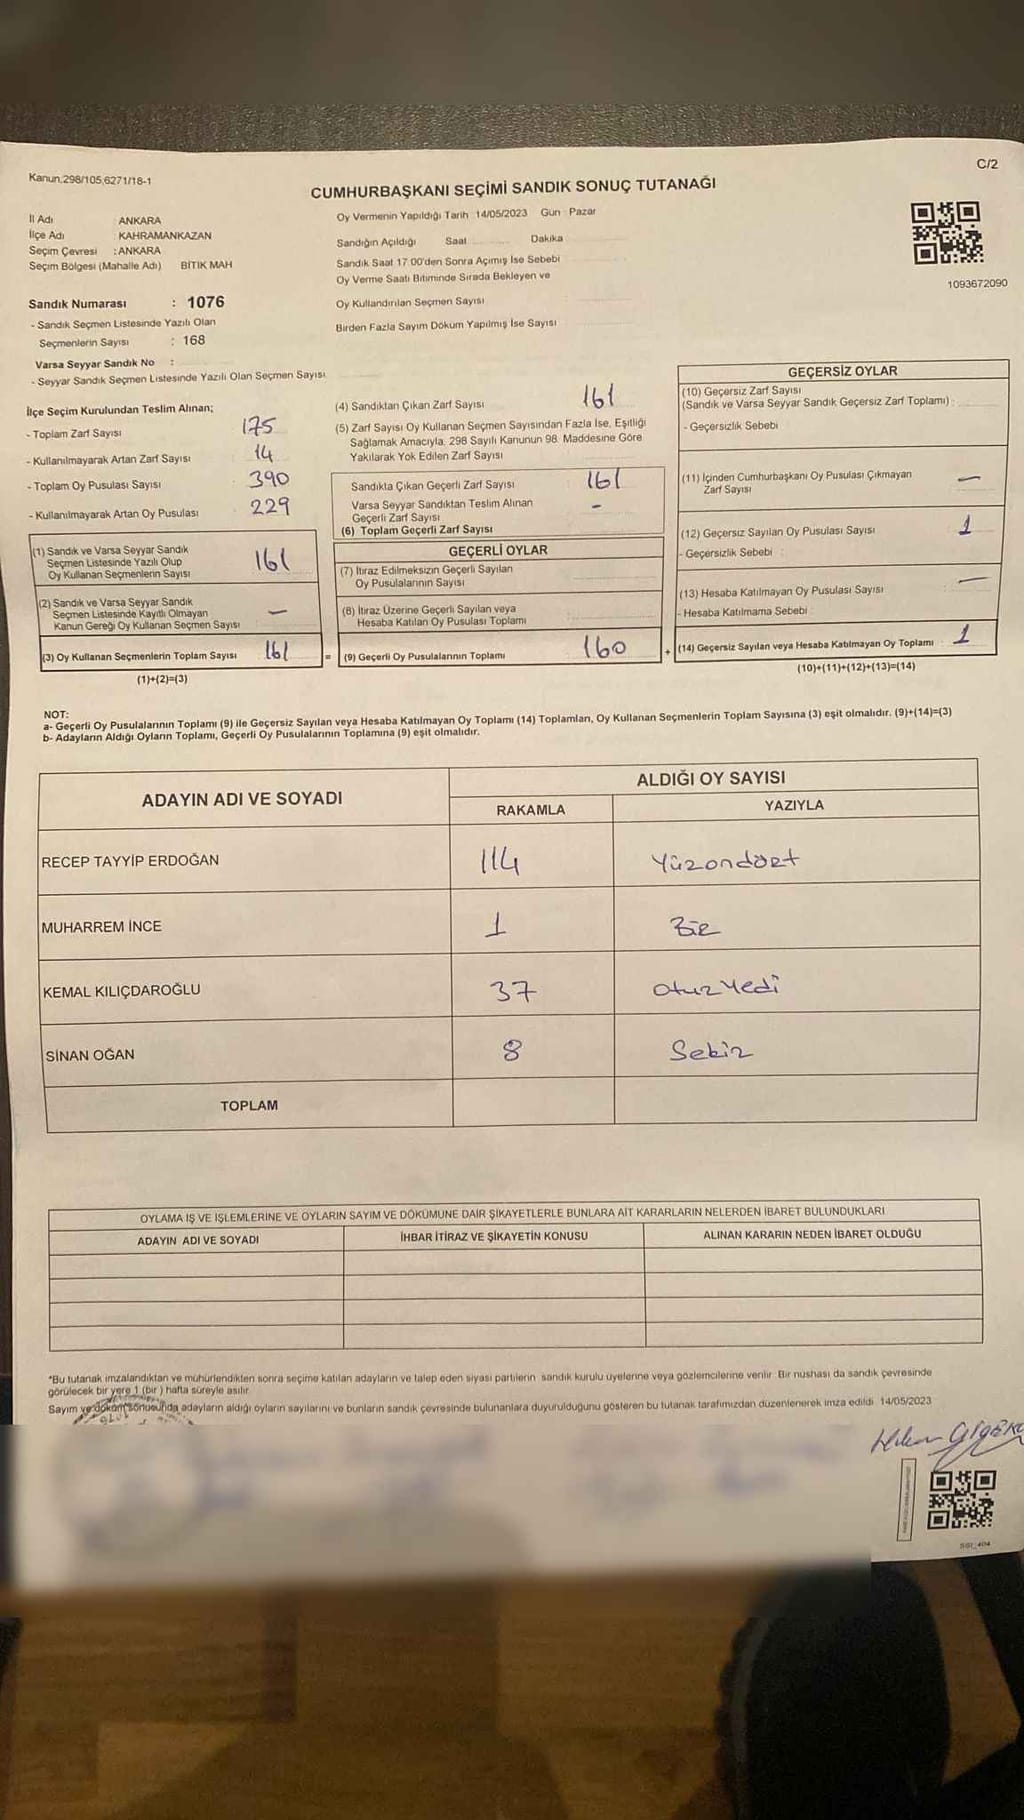 C/2
Kanun.298/105,6271/18-1
CUMHURBAŞKANI SEÇİMİ SANDIK SONUÇ TUTANAĞI
İl Adı ANKARA
İlçe Adı KAHRAMANKAZAN
Seçim Çevresi : ANKARA
Seçim Bölgesi (Mahalle Adı) BİTİK MAH
Oy Vermenin Yapıldığı Tarih 14/05/2023 Gün Pazar
Sandığın Açıldığı Saat Dakika
Sandık Saat 17:00'den Sonra Açımış İse Sebebi
Oy Verme Saati Bitiminde Sırada Bekleyen ve
Oy Kullandırılan Seçmen Sayısı
Birden Fazla Sayım Döküm Yapılmış İse Sayısı
1093672090
Sandık Numarası : 1076
- Sandık Seçmen Listesinde Yazılı Olan
Seçmenlerin Sayısı : 168
Varsa Seyyar Sandık No :
- Seyyar Sandık Seçmen Listesinde Yazılı Olan Seçmen Sayısı
İlçe Seçim Kurulundan Teslim Alınan;
- Toplam Zarf Sayısı 175
- Kullanılmayarak Artan Zarf Sayısı 14
- Toplam Oy Pusulası Sayısı 390
- Kullanılmayarak Artan Oy Pusulası 229
(1) Sandık ve Varsa Seyyar Sandık
Seçmen Listesinde Yazılı Olup
Oy Kullanan Seçmenlerin Sayısı 161
(2) Sandık ve Varsa Seyyar Sandık
Seçmen Listesinde Kayıtlı Olmayan
Kanun Gereği Oy Kullanan Seçmen Sayısı —
(3) Oy Kullanan Seçmenlerin Toplam Sayısı 161
(1)+(2)=(3)
(4) Sandıktan Çıkan Zarf Sayısı 161
(5) Zarf Sayısı Oy Kullanan Seçmen Sayısından Fazla İse, Eşitliği
Sağlamak Amacıyla, 298 Sayılı Kanunun 98. Maddesine Göre
Yakılarak Yok Edilen Zarf Sayısı
Sandıkta Çıkan Geçerli Zarf Sayısı 161
Varsa Seyyar Sandıktan Teslim Alınan
Geçerli Zarf Sayısı -
(6) Toplam Geçerli Zarf Sayısı
GEÇERLİ OYLAR
(7) İtiraz Edilmeksizin Geçerli Sayılan
Oy Pusulalarının Sayısı
(8) İtiraz Üzerine Geçerli Sayılan veya
Hesaba Katılan Oy Pusulası Toplamı
= (9) Geçerli Oy Pusulalarının Toplamı 160
GEÇERSİZ OYLAR
(10) Geçersiz Zarf Sayısı
(Sandık ve Varsa Seyyar Sandık Geçersiz Zarf Toplamı) :
- Geçersizlik Sebebi
(11) İçinden Cumhurbaşkanı Oy Pusulası Çıkmayan
Zarf Sayısı —
(12) Geçersiz Sayılan Oy Pusulası Sayısı 1
- Geçersizlik Sebebi :
(13) Hesaba Katılmayan Oy Pusulası Sayısı —
- Hesaba Katılmama Sebebi
+ (14) Geçersiz Sayılan veya Hesaba Katılmayan Oy Toplamı 1
(10)+(11)+(12)+(13)=(14)
NOT:
a- Geçerli Oy Pusulalarının Toplamı (9) ile Geçersiz Sayılan veya Hesaba Katılmayan Oy Toplamı (14) Toplamları, Oy Kullanan Seçmenlerin Toplam Sayısına (3) eşit olmalıdır. (9)+(14)=(3)
b- Adayların Aldığı Oyların Toplamı, Geçerli Oy Pusulalarının Toplamına (9) eşit olmalıdır.
ADAYIN ADI VE SOYADI ALDIĞI OY SAYISI
RAKAMLA YAZIYLA
RECEP TAYYİP ERDOĞAN 114 Yüzondört
MUHARREM İNCE 1 Bir
KEMAL KILIÇDAROĞLU 37 Otuzyedi
SİNAN OĞAN 8 Sekiz
TOPLAM
OYLAMA İŞ VE İŞLEMLERİNE VE OYLARIN SAYIM VE DÖKÜMÜNE DAİR ŞİKAYETLERLE BUNLARA AİT KARARLARIN NELERDEN İBARET BULUNDUKLARI
ADAYIN ADI VE SOYADI İHBAR İTİRAZ VE ŞİKAYETİN KONUSU ALINAN KARARIN NEDEN İBARET OLDUĞU
*Bu tutanak imzalandıktan ve mühürlendikten sonra seçime katılan adayların ve talep eden siyasi partilerin sandık kurulu üyelerine veya gözlemcilerine verilir. Bir nushası da sandık çevresinde
görülecek bir yere 1 (bir) hafta süreyle asılır.
Sayım ve döküm sonucunda adayların aldığı oyların sayılarını ve bunların sandık çevresinde bulunanlara duyurulduğunu gösteren bu tutanak tarafımızdan düzenlenerek imza edildi 14/05/2023
1076